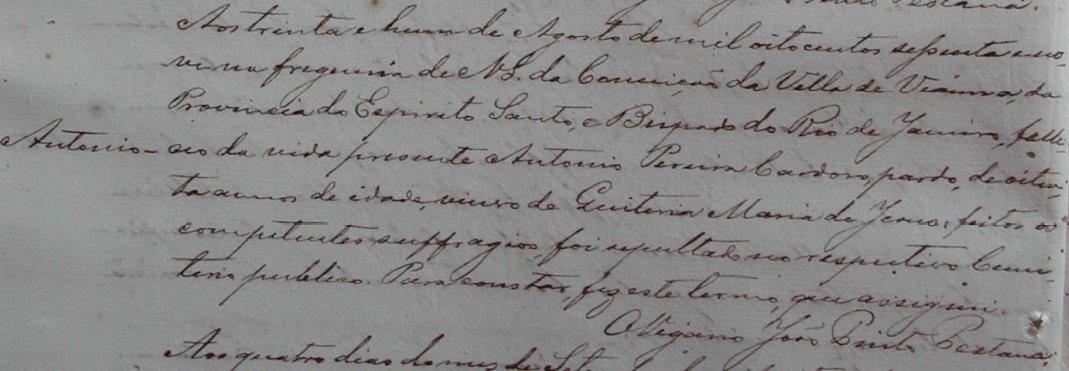 Pestana.
Aos trinta e hum de Agosto de mil oitocentos sessenta e no
ve na freguesia de N. S. da Conceição da Villa de Vianna, da
Provincia do Espirito Santo, e Bispado do Rio de Janeiro, falle
Antonio - ceo da vida presente Antonio Pereira Cardoso, pardo, de oiten
ta annos de idade, viuvo de Quiteria Maria de Jesus; feitos os
competentes suffragios, foi sepultado no respectivo Cemi
terio publico. Para constar, fiz este termo, que assignei.
O Vigario João Pinto Pestana.
Aos quatro dias do mes de Sete